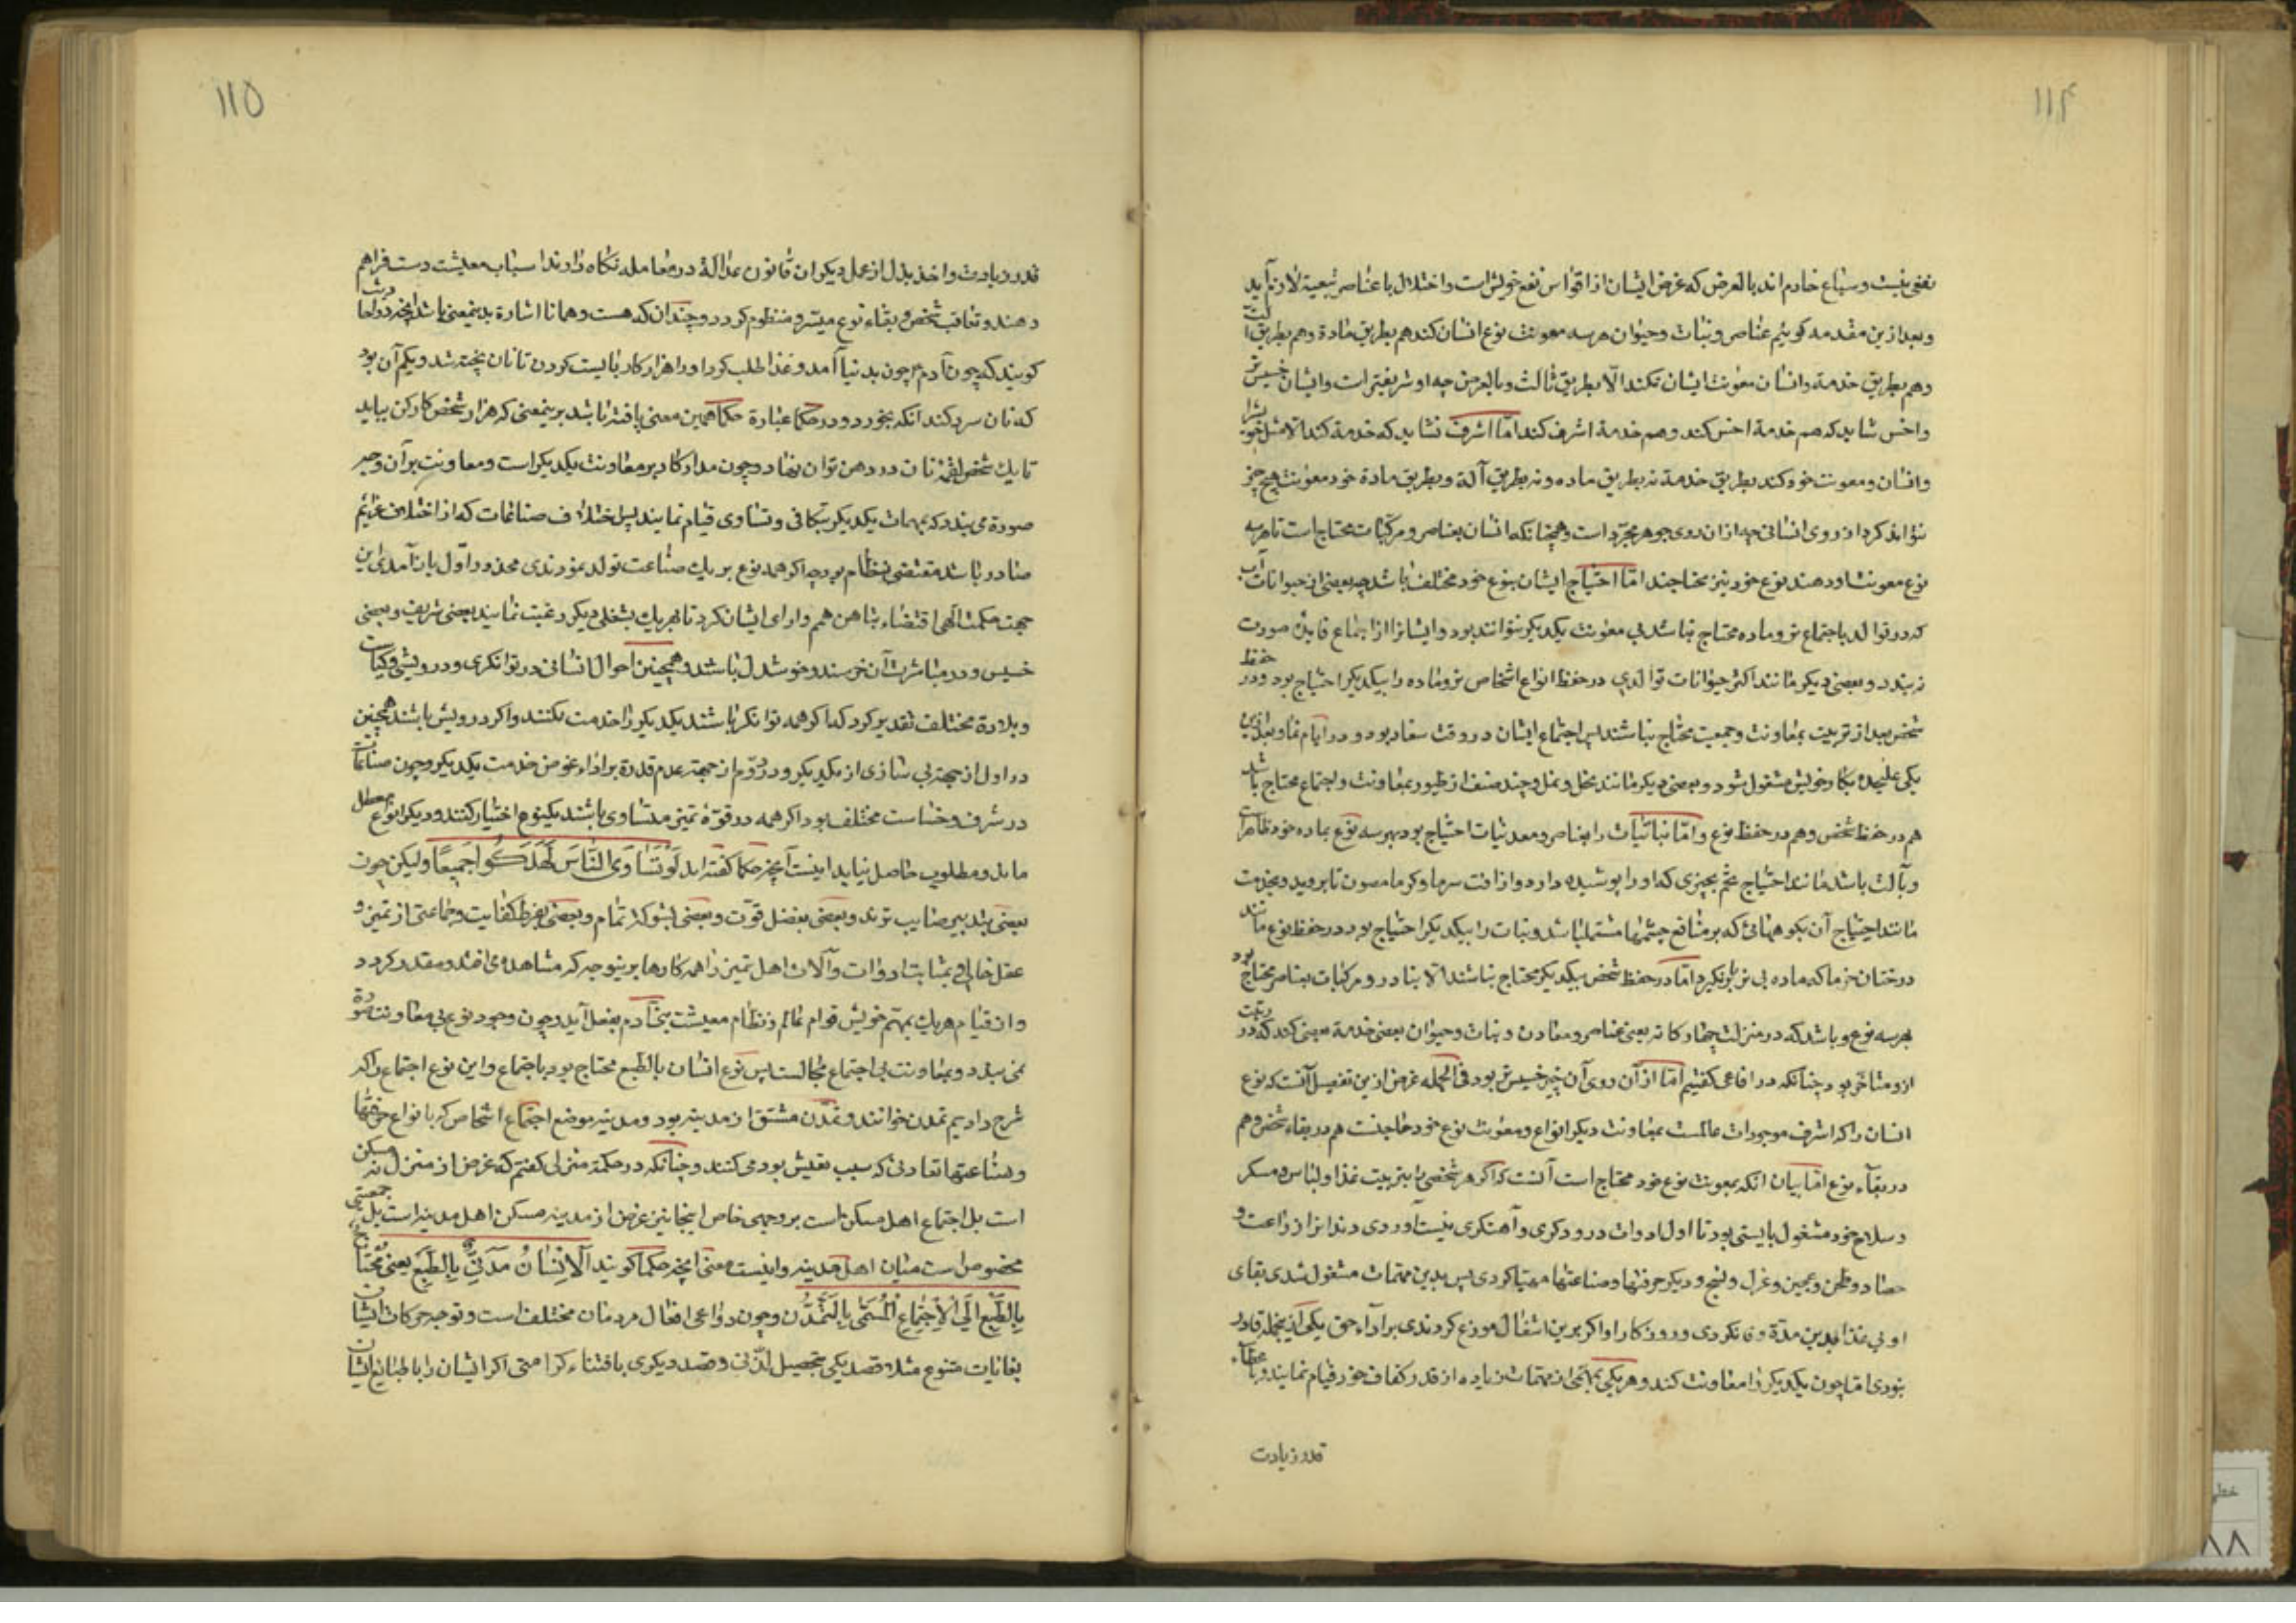 ۱۱۴
نفعی نیست و سباع خادم اند بالعرض که غرض ایشان از افتراس نفع خویش است و اختلال با عناصر بتبعیة لازم آید
و بعد ازین مقدمه کوئیم عناصر و نبات و حیوان هر سه معونت نوع انسان کند هم بطریق مادة و هم بطریق آلت
و هم بطریق خدمة و انسان معونت ایشان نکند الّا بطریق ثالث و بالعرض چه او شریفتر است و ایشان خسیس تر
و اخس شاید که هم خدمة اخس کند و هم خدمة اشرف کند امّا اشرف نشاید که خدمة کند الا مثل خویش را
و انسان و معونت خود کند بطریق خدمة نه بطریق ماده و نه بطریق آلة و بطریق مادة خود معونت هیچ چیز
نتواند کرد از روی انسانی چه از ان روی جوهر مجرّد است و همچنانکه انسان بعناصر و مرکّبات محتاج است تا هر سه
نوع معونت او دهند بنوع خود نیز محتاجند امّا احتیاج ایشان بنوع خود مختلف باشد چه بعضی از حیوانات آب
که در توالد باجتماع نر و ماده محتاج نباشد بی معونت یکدیکر نتوانند بود و ایشانرا از اجتماع فایدۀ صورت
نه بندد و بعضی دیکر مانند اکثر حیوانات توالدی در حفظ انواع اشخاص نر و ماده را بیکدیکر احتیاج بود و در حفظ
شخص بعد از تربیت بمعاونت و جمعیت محتاج نباشند پس اجتماع ایشان در وقت سفاد بود و در ایام نما و بعد از ین
یکی علیحده بکار خویش مشغول شود و بعضی دیکر مانند نحل و نمل و چند صنف از طیور بمعاونت و اجتماع محتاج باشد
هم در حفظ شخص و هم در حفظ نوع و امّا نباتیات را بعناصر و معدنیات احتیاج بود بهر سه نوع بماده خود ظاهرات
و بآلت باشد مانند احتیاج تخم بچیزی که او را پوشیده دارد و از افت سرما و کرما مصون تا بروید و بخدمت
مانند احتیاج آن بکوههائی که بر منافع چشمها مشتمل باشد و نبات را بیکدیکر احتیاج بود در حفظ نوع مانند
درختان خرما که ماده بی نر بار نکیرد امّا در حفظ شخص بیکدیکر محتاج نباشند الّا بنادر و مرکبات بعناصر محتاج بود
بهر سه نوع و باشد که در منزلت چهار کانه یعنی عناصر و معادن و نبات و حیوان بعضی خدمة بعضی کند که در رتبت
ازو متاخر بود چنانکه در افاعی کفتیم امّا از آن روی آن چیز خسیس تر بود فی الجمله غرض ازین تفصیل آنست که نوع
انسان را که اشرف موجودات عالمست بمعاونت دیکر انواع و معونت نوع خود حاجتست هم در بقاء شخص و هم
در بقآء نوع امّا بیان انکه بمعونت نوع خود محتاج است آنست که اکر هر شخصی را بترتیب غذا و لباس و مسکن
و سلاح خود مشغول بایستی بود تا اول ادوات درودکری و آهنکری بدست آوردی و بدانزا زراعت و
حصاد و طحن و عجین و غزل و نسج و دیکر حرفتها و صناعتها مهیّا کردی پس بدین مهمّات مشغول شدی بقای
او بی غذا بدین مدّة وفا نکردی و روزکار او اکر برین اشغال موزع کردندی بر ادآء حق یکی از این جمله قادر
نبودی امّا چون یکدیکر را معاونت کند و هر یکی بمهمّی از مهمّات زیاده از قدر کفاف خود قیام نمایند و باعطآء
قدر زیادت
۱۱۵
قدر زیادت و اخذ بدل از عمل دیکران قانون عدالة در معامله نکاه دارند اسباب معیشت دست فراهم
دهند و تعاقب شخص و بقاء نوع میسّر و منظوم کردد و چندان که هست و همانا اشارة بدینمعنی باشد آنچه در احادیث
کویند که چون آدم م چون بدنیا آمد و غذا طلب کرد او را هزار کار بایست کردن تا نان پخته شد و یکم آن بود
که نان سرد کند انکه بخورد و در حکما عبارة حکما همین معنی یافته باشد برینمعنی که هزار شخص کارکن بباید
تا یك شخص لقمۀ نان در دهن تواند نهاد و چون مدار کار بر معاونت یکدیکر است و معاونت بر آن وجه
صورة می بندد که بمهمات یکدیکر بتکافی و تساوی قیام نمایند پس اختلاف صناعات که از اختلاف عزایم
صادر باشد مقتضی نظام بود چه اکر همه نوع بر یك صناعت تولد نمودندی محذور اول باز آمدی ازین
جهت حکمت الهی اقتضاء تباین همم و ارای ایشان کرد تا هر یك بشغلی دیکر رغبت نمایند بعضی شریف و بعضی
خسیس و در مباشرت آن خرسند و خوشدل باشند و همچنین احوال انسانی در توانکری و درویشی و کیاست
و بلادة مختلف تقدیر کرد که اکر همه توانکر باشند یکدیکر را خدمت نکنند و اکر درویش باشند همچنین
در اول از جهة بی نیازی از یکدیکر و در دوّم از جهة عدم قدرة بر اداء عوض خدمت یکدیکر و چون صناعات
در شرف و خساست مختلف بود اکر همه در قوّة تمیز متساوی باشند یکنوع اختیار کنند و دیکر انواع معطل
ماند و مطلوب حاصل نیاید اینست آنچه حکما کفته اند لَوْ تَسَاوَى النَّاسَ لَهَلَكُوا جَمِيعًا ولیکن چون
بعضی بتدبیر صایب ترند و بعضی بفضل قوّت و بعضی بشوکت تمام و بعضی بفرط کفایت و جماعتی از تمیز و
عقل خالی و بمثابت ادوات و آلات اهل تمیز را همه کارها برینوجه که مشاهده می افتد و مقدر کردد
و از قیام هر یك بمهّم خویش قوام عالم و نظام معیشت بنی آدم بفعل آید و چون وجود نوع بی معاونت صورة
نمی بندد و معاونت بی اجتماع محالست پس نوع انسان بالطبع محتاج بود باجتماع و این نوع اجتماع را که
شرح دادیم تمدن خوانند و تمدّن مشتق از مدینه بود و مدینه موضع اجتماع اشخاص که بانواع حرفتها
و صناعتها تعاونی که سبب تعیش بود می کنند و چنانکه در حکمة منزلی کفتم که غرض از منزل نه مسکن
است بل اجتماع اهل مسکن است بر وجهی خاص اینجا نیز غرض از مدینه مسکن اهل مدینه است بل جمعیتی
مخصوص است میان اهل مدینه و اینست معنی انچه حکما کویند اَلْاِنْسَانُ مَدَنِیٌّ بِالطَّبْعِ یعنی مُحْتَاجٌ
بِالطَّبْعِ اِلَی الْاِجْتِمَاعِ الْمُسَمَّی بِالتَّمَدُّن و چون دواعی افعال مردمان مختلف است و توجه حرکات ایشان
بغایات متنوع مثلا قصد یکی بتحصیل لذّتی و قصد دیکری باقتناء کرامتی اکر ایشان را با طبایع ایشان